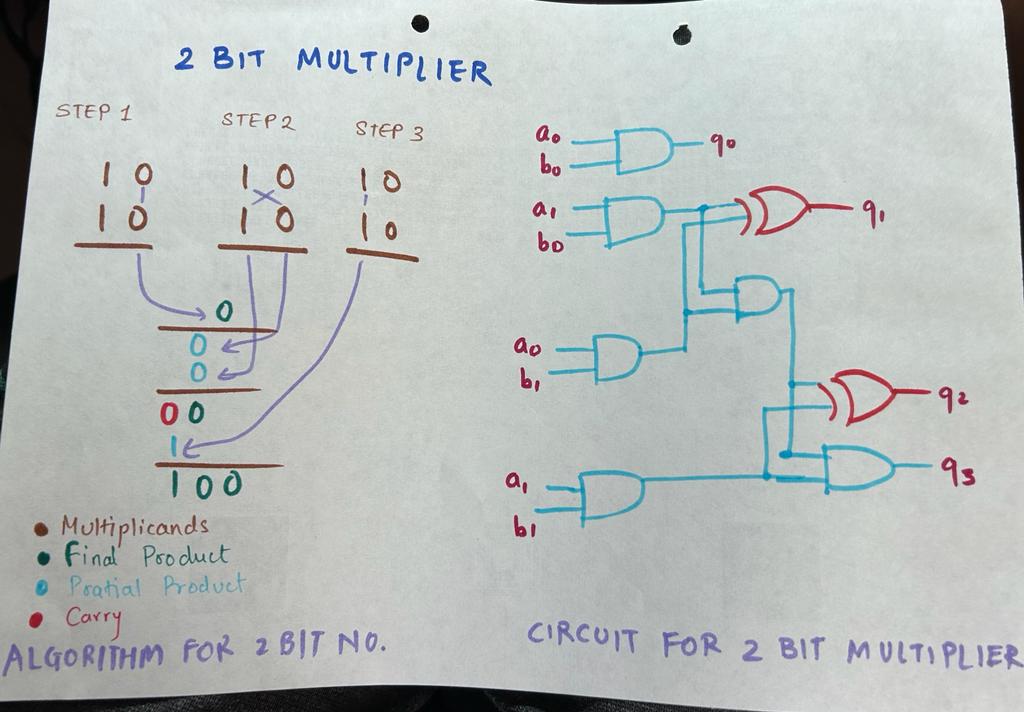 2 BIT MULTIPLIER
STEP 1
STEP 2
STEP 3
1 0
1 0
1 0
1 0
1 0
1 0
0
0
0
0 0
1
1 0 0
Multiplicands
Final Product
Pratial Product
Carry
ALGORITHM FOR 2 BIT NO.
a0
b0
q0
a1
b0
q1
a0
b1
q2
a1
b1
q3
CIRCUIT FOR 2 BIT MULTIPLIER